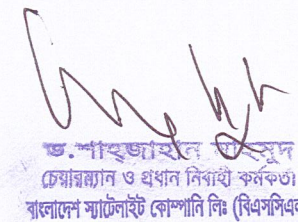 ড. শাহজাহান মাহমুদ
চেয়ারম্যান ও প্রধান নির্বাহী কর্মকর্তা
বাংলাদেশ স্যাটেলাইট কোম্পানি লিঃ (বিএসসিএ